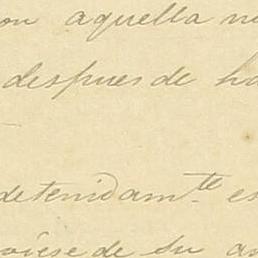 on aquella
despues de
detenidamte es
de su